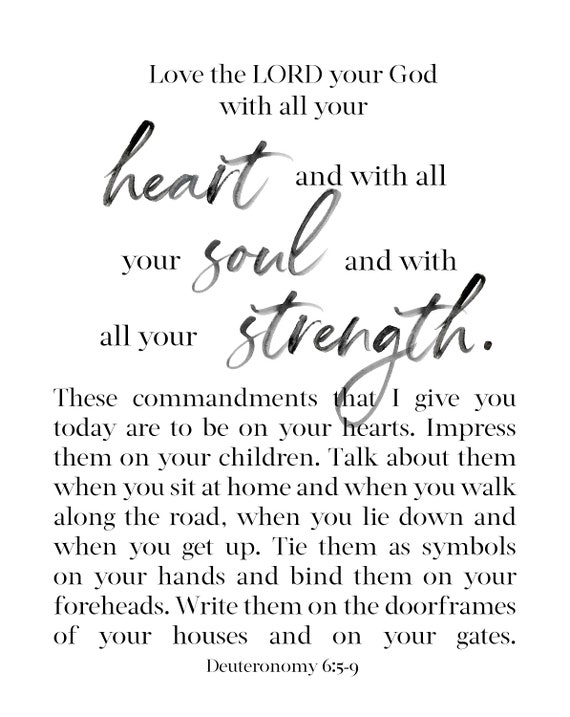 Love the LORD your God
with all your
heart and with all
your soul and with
all your strength.
These commandments that I give you
today are to be on your hearts. Impress
them on your children. Talk about them
when you sit at home and when you walk
along the road, when you lie down and
when you get up. Tie them as symbols
on your hands and bind them on your
foreheads. Write them on the doorframes
of your houses and on your gates.
Deuteronomy 6:5-9